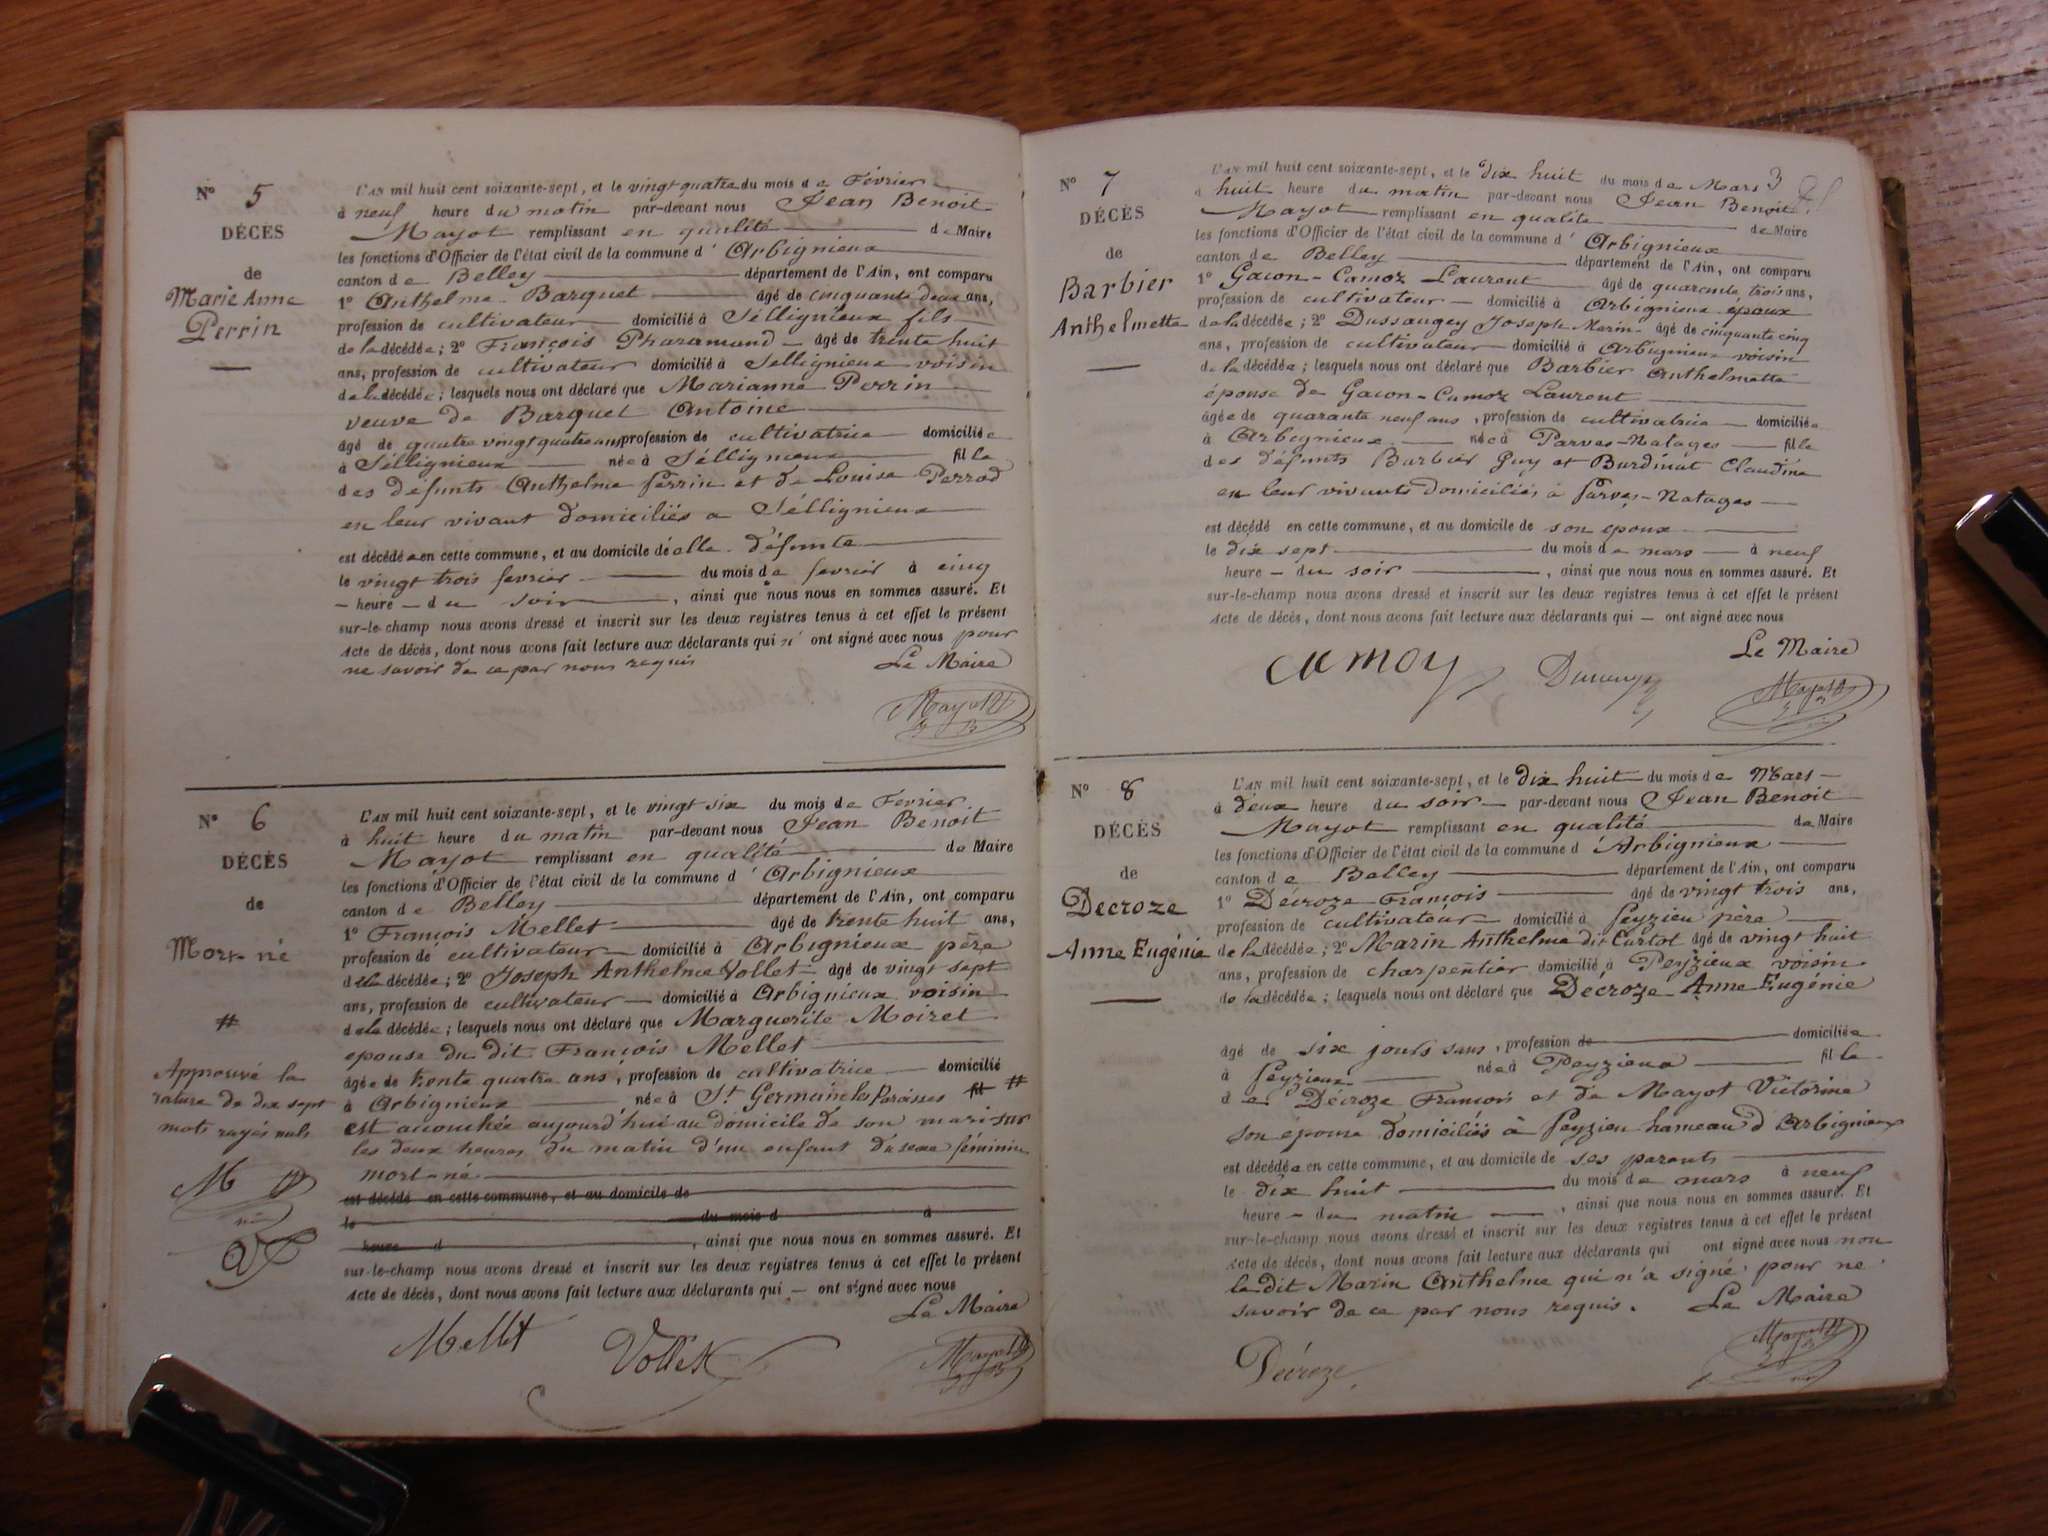 N° 5
DÉCÈS
de
Marie Anne
Perrin
L'AN mil huit cent soixante-sept, et le vingt quatre du mois de Février
à neuf heure du matin par-devant nous Jean Benoit
Mayot remplissant en qualité de Maire
les fonctions d'Officier de l'état civil de la commune d'Arbignieux
canton de Belley département de l'Ain, ont comparu
1° Anthelme Barquet âgé de cinquante deux ans,
profession de cultivateur domicilié à Séllignieux fils
de la décédée; 2° François Pharamand âgé de trente huit
ans, profession de cultivateur domicilié à Sellignieux voisin
de la décédée; lesquels nous ont déclaré que Marianne Perrin
veuve de Barquet Antoine
âgé de quatre vingt quatre ans profession de cultivatrice domiciliée
à Séllignieux née à Séllignieux fille
des défunts Anthelme Perrin et de Louise Perrod
en leur vivant domiciliés a Séllignieux
est décédée en cette commune, et au domicile de elle défunte
le vingt trois fevrier du mois de fevrier à cinq
heure du soir, ainsi que nous nous en sommes assuré. Et
sur-le-champ nous avons dressé et inscrit sur les deux registres tenus à cet effet le présent
Acte de décès, dont nous avons fait lecture aux déclarants qui n'ont signé avec nous pour
ne savoir de ce par nous requis Le Maire
Mayot JB
N° 6
DÉCÈS
de
Mort-né
#
Approuvé la
rature de dix sept
mots rayés nuls
L'AN mil huit cent soixante-sept, et le vingt six du mois de Fevrier
à huit heure du matin par-devant nous Jean Benoit
Mayot remplissant en qualité de Maire
les fonctions d'Officier de l'état civil de la commune d'Arbignieux
canton de Belley département de l'Ain, ont comparu
1° François Mellet âgé de trente huit ans,
profession de cultivateur domicilié à Arbignieux père
de la décédée; 2° Joseph Anthelme Vollet âgé de vingt sept
ans, profession de cultivateur domicilié à Arbignieux voisin
de la décédée; lesquels nous ont déclaré que Marguerite Moiret
epouse du dit François Mellet
âgée de trente quatre ans, profession de cultivatrice domicilié
à Arbignieux née à St Germain les Paroisses fil #
est accouchée aujourd'hui au domicile de son mari sur
les deux heures du matin d'un enfant du sexe féminin
mort-né
est décédé en cette commune, et au domicile de
le du mois d à
heure d, ainsi que nous nous en sommes assuré. Et
sur-le-champ nous avons dressé et inscrit sur les deux registres tenus à cet effet le présent
Acte de décès, dont nous avons fait lecture aux déclarants qui — ont signé avec nous
Le Maire
Mellet Vollet Mayot JB
N° 7
DÉCÈS
de
Barbier
Anthelmette
3
L'AN mil huit cent soixante-sept, et le dix huit du mois de Mars
à huit heure du matin par-devant nous Jean Benoit
Mayot remplissant en qualité de Maire
les fonctions d'Officier de l'état civil de la commune d'Arbignieux
canton de Belley département de l'Ain, ont comparu
1° Gacon-Camoz Laurent âgé de quarante trois ans,
profession de cultivateur domicilié à Arbignieux époux
de la décédée; 2° Dussaugey Joseph Marin âgé de cinquante cinq
ans, profession de cultivateur domicilié à Arbignieux voisin
de la décédée; lesquels nous ont déclaré que Barbier Anthelmette
épouse de Gacon-Camoz Laurent
âgée de quarante neuf ans, profession de cultivatrice domiciliée
à Arbignieux née à Parves-Natages fille
des défunts Barbier Guy et Burdinat Claudine
en leur vivants domiciliés à Parves-Natages
est décédé en cette commune, et au domicile de son epoux
le dix sept du mois de mars à neuf
heure du soir, ainsi que nous nous en sommes assuré. Et
sur-le-champ nous avons dressé et inscrit sur les deux registres tenus à cet effet le présent
Acte de décès, dont nous avons fait lecture aux déclarants qui — ont signé avec nous
Le Maire
camoz Mayot JB
N° 8
DÉCÈS
de
Decroze
Anne Eugénie
L'AN mil huit cent soixante-sept, et le dix huit du mois de Mars
à deux heure du soir par-devant nous Jean Benoit
Mayot remplissant en qualité de Maire
les fonctions d'Officier de l'état civil de la commune d'Arbignieux
canton de Belley département de l'Ain, ont comparu
1° Décroze François âgé de vingt trois ans,
profession de cultivateur domicilié à Peyzieu père
de la décédée; 2° Marin Anthelme dit Curtot âgé de vingt huit
ans, profession de charpentier domicilié à Peyzieux voisin
de la décédée; lesquels nous ont déclaré que Décroze Anne Eugénie
âgé de six jours sans, profession de domiciliée
à Peyzieux née à Peyzieux fille
de Décroze François et de Mayot Victorine
son épouse domiciliés à Peyzieu hameau d'Arbignieux
est décédée en cette commune, et au domicile de ses parents
le dix huit du mois de mars à neuf
heure du matin, ainsi que nous nous en sommes assuré. Et
sur-le-champ nous avons dressé et inscrit sur les deux registres tenus à cet effet le présent
Acte de décès, dont nous avons fait lecture aux déclarants qui ont signé avec nous non
le dit Marin Anthelme qui n'a signé pour ne
savoir de ce par nous requis. Le Maire
Décroze Mayot JB